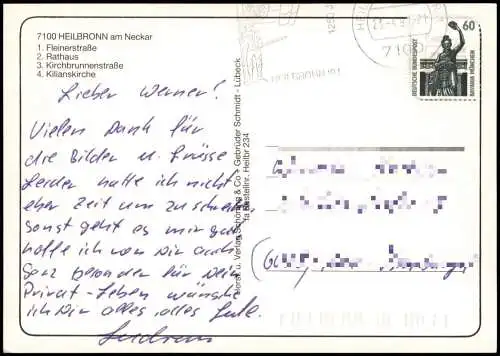 7100 HEILBRONN am Neckar
1. Fleinerstraße
2. Rathaus
3. Kirchbrunnenstraße
4. Kilianskirche
Lieber Werner!
Vielen Dank für
die Bilder u. Grüsse
Leider hatte ich nicht
eher Zeit um zu schreiben
sonst geht es mir gut
hoffe ich von Dir auch
Ganz besonder für Dein
Privat-Leben wünsche
ich Dir alles, alles Gute.
Verlag Schöning & Co + Gebrüder Schmidt - Lübeck
Bestellnr. Heilbr 234
7100
60
DEUTSCHE BUNDESPOST
BAVARIA MÜNCHEN